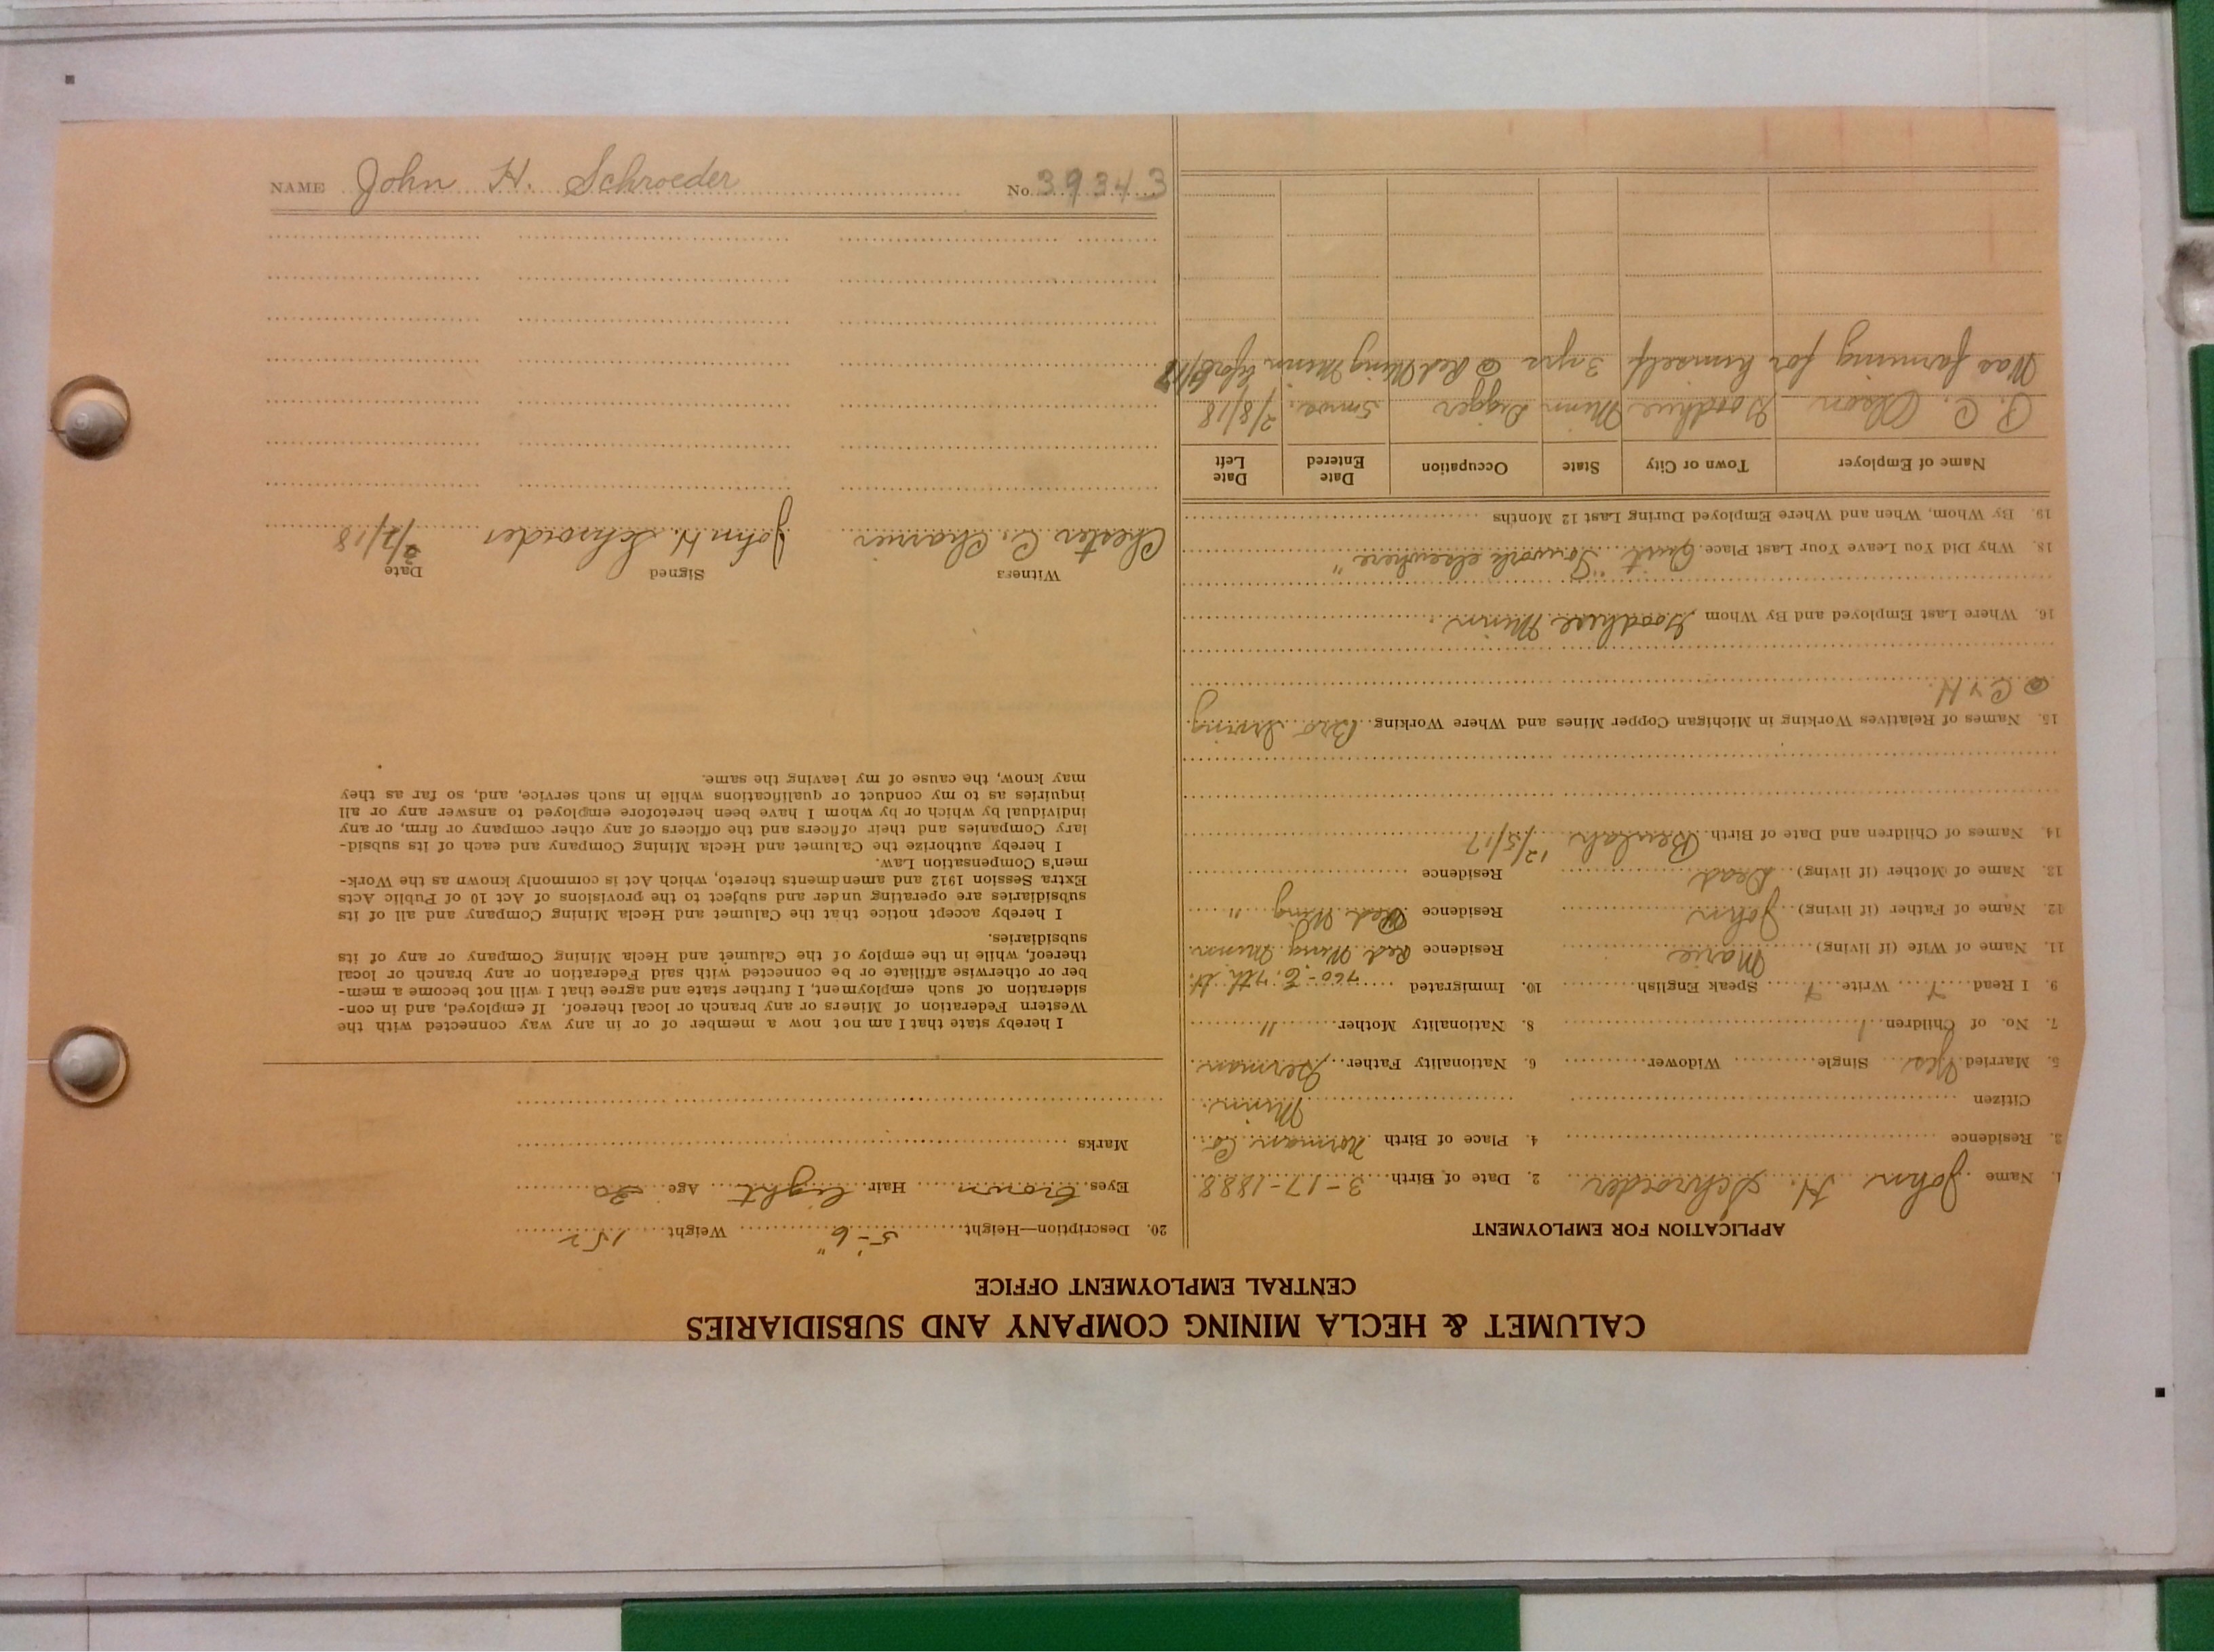 CALUMET & HECLA MINING COMPANY AND SUBSIDIARIES
CENTRAL EMPLOYMENT OFFICE
APPLICATION FOR EMPLOYMENT
1. Name John H. Schroeder 2. Date of Birth 3-17-1888
3. Residence 4. Place of Birth Norman Co.
Citizen Minn.
5. Married Yes Single Widower 6. Nationality Father German
7. No. of Children 1 8. Nationality Mother "
9. I Read Write Speak English 10. Immigrated 760-E. 7th St.
11. Name of Wife (if living) Marie Residence Red Wing Minn.
12. Name of Father (if living) John Residence Red Wing "
13. Name of Mother (if living) Dead Residence
14. Names of Children and Date of Birth Beulah 12/5/17
15. Names of Relatives Working in Michigan Copper Mines and Where Working Bro Irving
@ C & H.
16. Where Last Employed and By Whom Goodhue Minn
18. Why Did You Leave Your Last Place Quit "To work elsewhere"
19. By Whom, When and Where Employed During Last 12 Months
Name of Employer Town or City State Occupation Date Entered Date Left
P. C. Olson Goodhue Minn Digger 5 mos. 2/8/18
Was farming for himself 3 yrs @ Red Wing Minn
20. Description—Height 5'-6" Weight 152
Eyes brown Hair light Age 30
Marks
I hereby state that I am not now a member of or in any way connected with the
Western Federation of Miners or any branch or local thereof. If employed, and in con-
sideration of such employment, I further state and agree that I will not become a mem-
ber or otherwise affiliate or be connected with said Federation or any branch or local
thereof, while in the employ of the Calumet and Hecla Mining Company or any of its
subsidiaries.
I hereby accept notice that the Calumet and Hecla Mining Company and all of its
subsidiaries are operating under and subject to the provisions of Act 10 of Public Acts
Extra Session 1912 and amendments thereto, which Act is commonly known as the Work-
men's Compensation Law.
I hereby authorize the Calumet and Hecla Mining Company and each of its subsid-
iary Companies and their officers and the officers of any other company or firm, or any
individual by which or by whom I have been heretofore employed to answer any or all
inquiries as to my conduct or qualifications while in such service, and, so far as they
may know, the cause of my leaving the same.
Witness Signed Date
Chester C. John H. Schroeder
NAME John H. Schroeder No. 39343